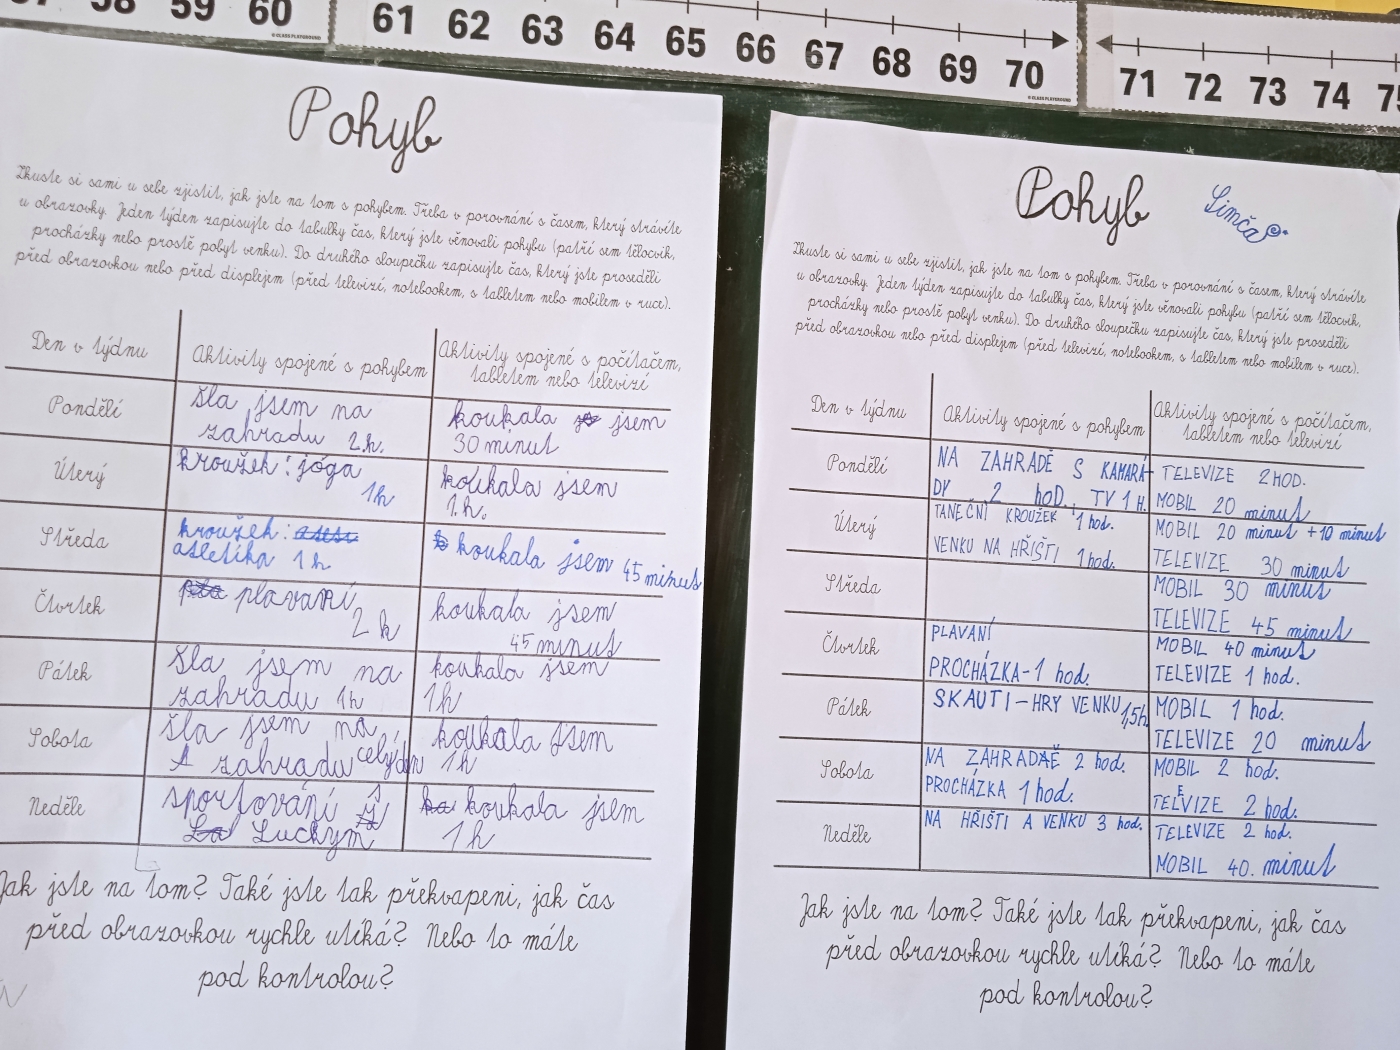 58 59 60
61 62 63 64 65 66 67 68 69 70
71 72 73 74
© CLASS PLAYGROUND
© CLASS PLAYGROUND
Pohyb
Zkuste si sami u sebe zjistit, jak jste na tom s pohybem. Třeba v porovnání s časem, který strávíte
u obrazovky. Jeden týden zapisujte do tabulky čas, který jste věnovali pohybu (patří sem tělocvik,
procházky nebo prostě pobyt venku). Do druhého sloupečku zapisujte čas, který jste proseděli
před obrazovkou nebo před displejem (před televizí, notebookem, s tabletem nebo mobilem v ruce).
Den v týdnu
Aktivity spojené s pohybem
Aktivity spojené s počítačem,
tabletem nebo televizí
Pondělí
šla jsem na
zahradu 2h.
koukala jsem
30 minut
Úterý
kroužek: jóga
1h
koukala jsem
1.h.
Středa
kroužek:
atletika 1h
koukala jsem 45 minut
Čtvrtek
plavaní
2h
koukala jsem
45 minut
Pátek
šla jsem na
zahradu 1h
koukala jsem
1h
Sobota
šla jsem na
zahradu celý den
koukala jsem
1h
Neděle
sportování s
Luckym
koukala jsem
1h
Jak jste na tom? Také jste tak překvapeni, jak čas
před obrazovkou rychle utíká? Nebo to máte
pod kontrolou?
Pohyb
Simča
Zkuste si sami u sebe zjistit, jak jste na tom s pohybem. Třeba v porovnání s časem, který strávíte
u obrazovky. Jeden týden zapisujte do tabulky čas, který jste věnovali pohybu (patří sem tělocvik,
procházky nebo prostě pobyt venku). Do druhého sloupečku zapisujte čas, který jste proseděli
před obrazovkou nebo před displejem (před televizí, notebookem, s tabletem nebo mobilem v ruce).
Den v týdnu
Aktivity spojené s pohybem
Aktivity spojené s počítačem,
tabletem nebo televizí
Pondělí
NA ZAHRADĚ S KAMARÁ-
DY 2 hoD., TV 1 H.
TELEVIZE 2 HOD.
MOBIL 20 minut
Úterý
TANEČNÍ KROUŽEK 1 hod.
VENKU NA HŘIŠTI 1 hod.
MOBIL 20 minut + 10 minut
TELEVIZE 30 minut
Středa
MOBIL 30 minut
TELEVIZE 45 minut
Čtvrtek
PLAVANÍ
PROCHÁZKA - 1 hod.
MOBIL 40 minut
TELEVIZE 1 hod.
Pátek
SKAUTI - HRY VENKU 1,5h
MOBIL 1 hod.
TELEVIZE 20 minut
Sobota
NA ZAHRADĚ 2 hod.
PROCHÁZKA 1 hod.
MOBIL 2 hod.
TELEVIZE 2 hod.
Neděle
NA HŘIŠTI A VENKU 3 hod.
TELEVIZE 2 hod.
MOBIL 40. minut
Jak jste na tom? Také jste tak překvapeni, jak čas
před obrazovkou rychle utíká? Nebo to máte
pod kontrolou?